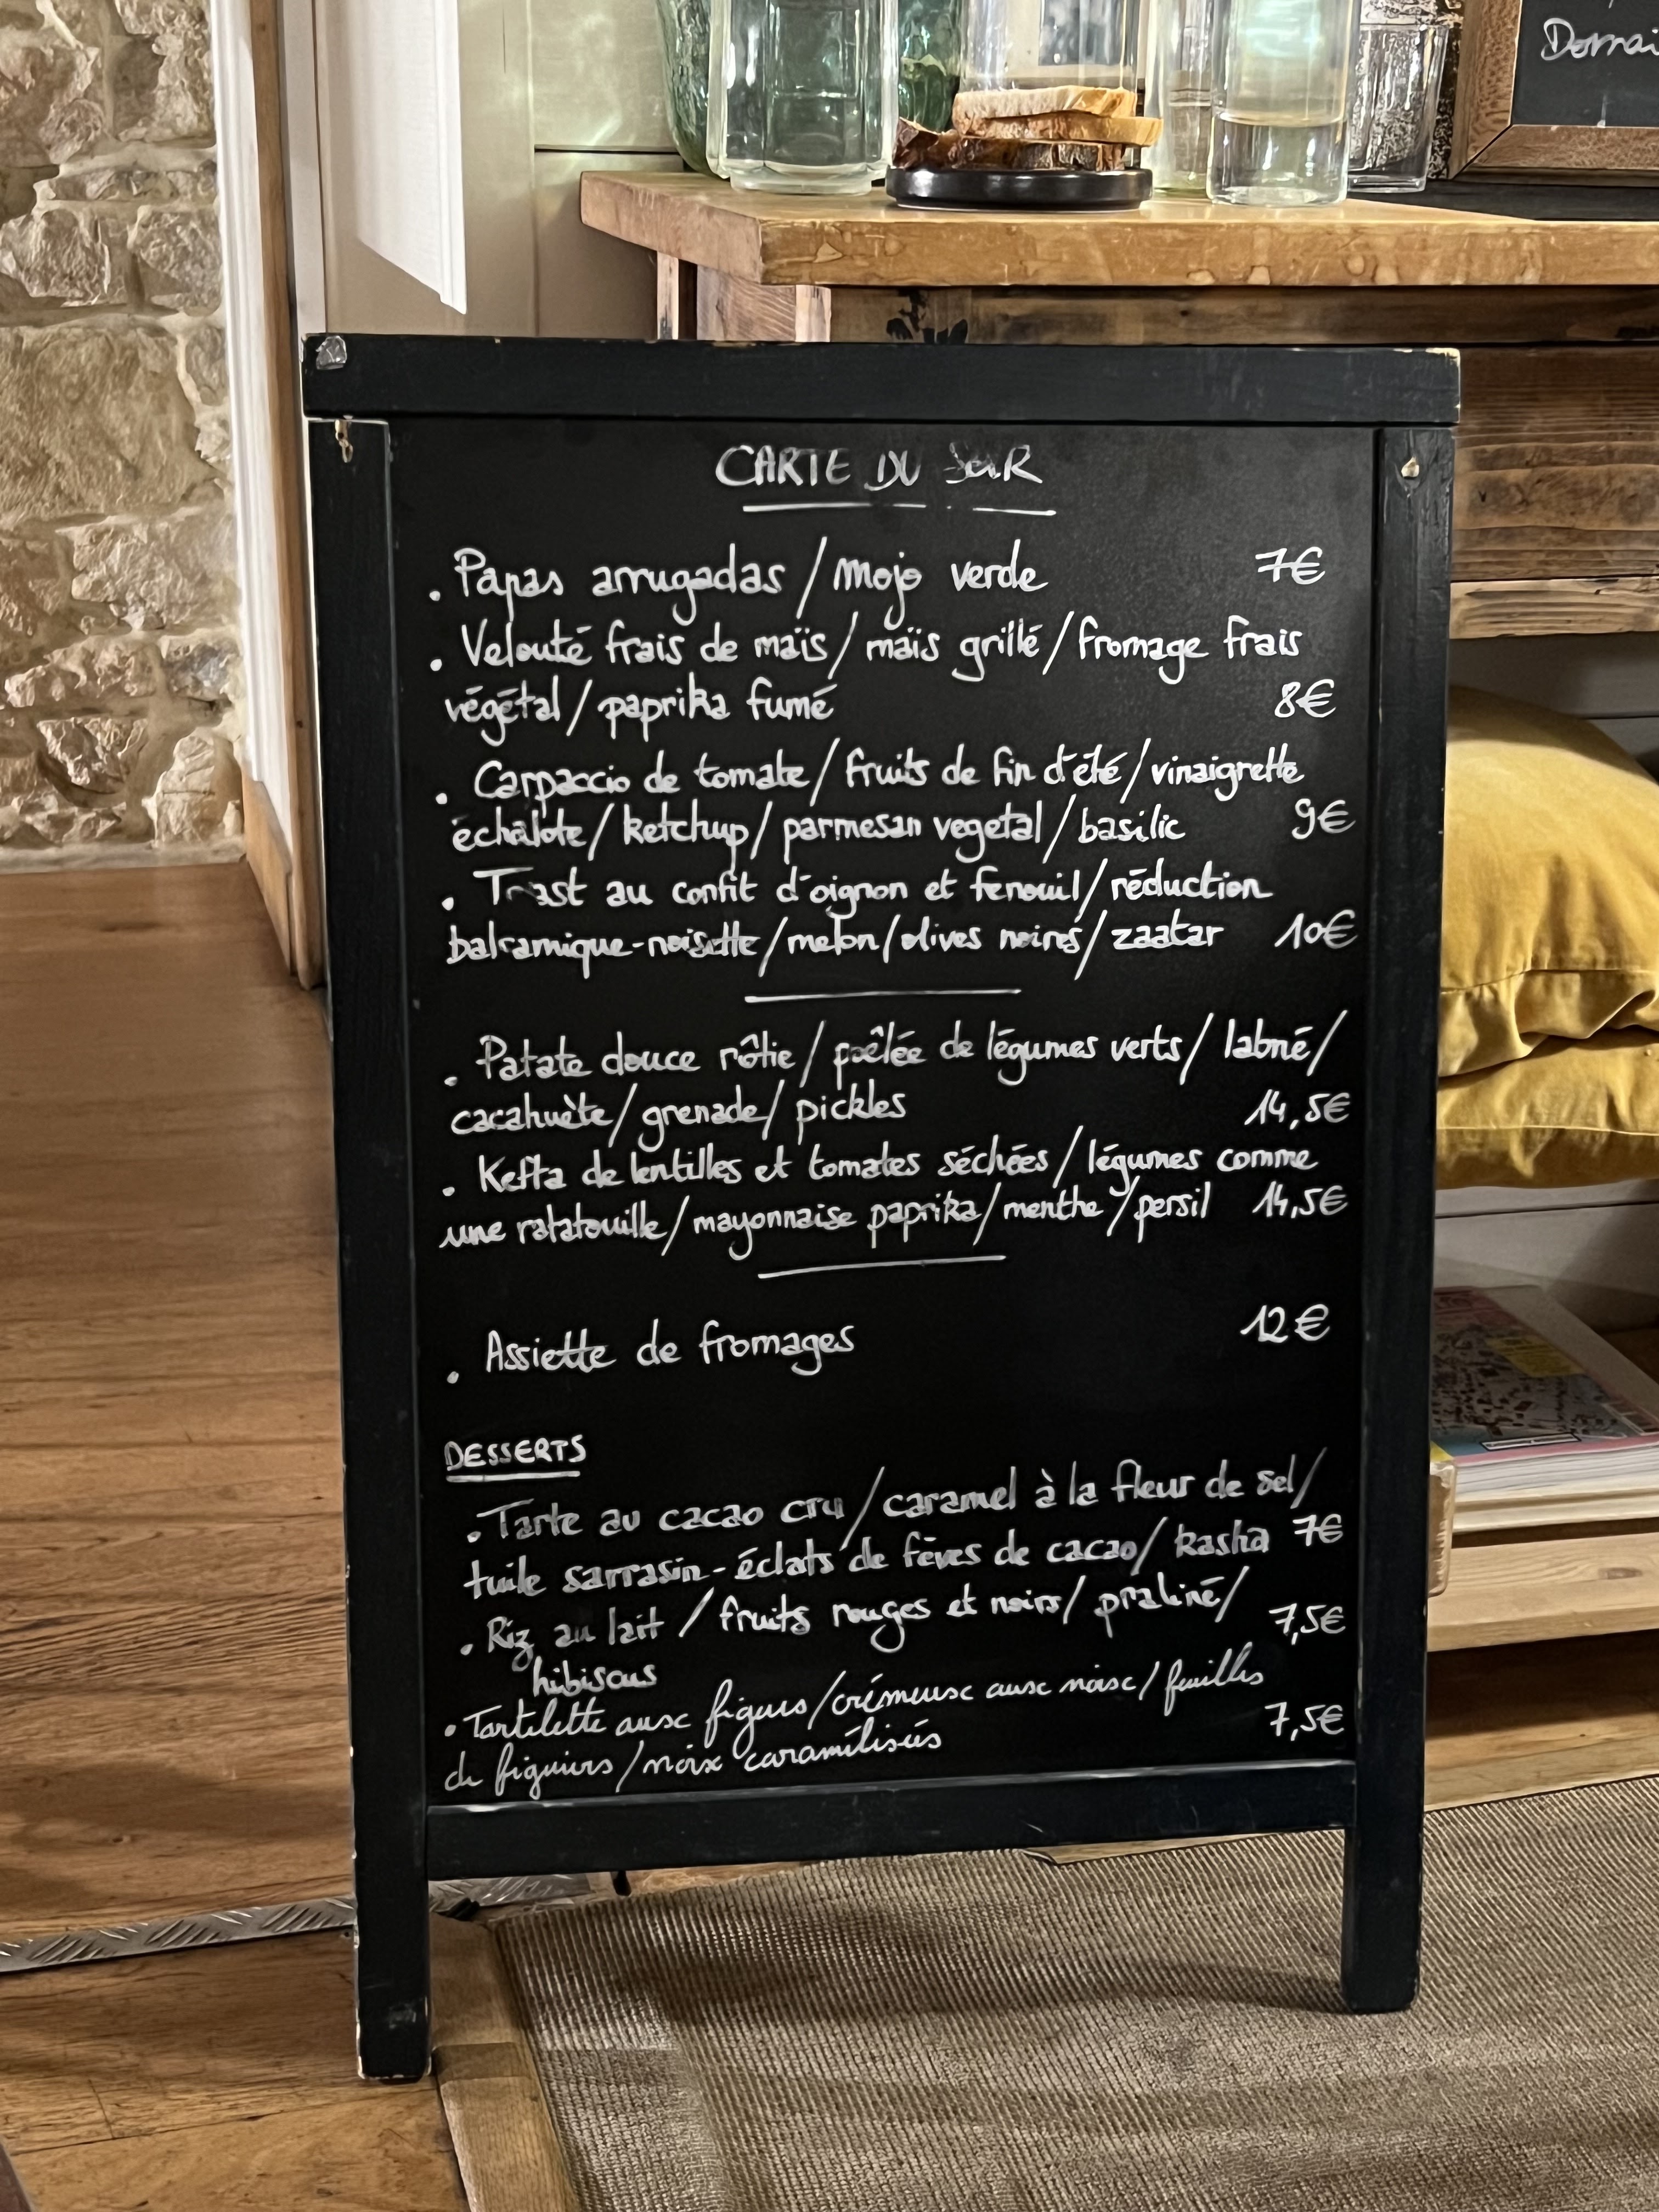 Domai
CARTE DU SOIR
. Papas arrugadas / mojo verde 7€
. Velouté frais de maïs / maïs grillé / fromage frais
végétal / paprika fumé 8€
. Carpaccio de tomate / fruits de fin d'été / vinaigrette
échalote / ketchup / parmesan vegetal / basilic 9€
. Toast au confit d'oignon et fenouil / réduction
balsamique-noisette / melon / olives noires / zaatar 10€
. Patate douce rôtie / poêlée de légumes verts / labné /
cacahuète / grenade / pickles 14,5€
. Kefta de lentilles et tomates séchées / légumes comme
une ratatouille / mayonnaise paprika / menthe / persil 14,5€
. Assiette de fromages 12€
DESSERTS
. Tarte au cacao cru / caramel à la fleur de sel /
tuile sarrasin-éclats de fèves de cacao / kasha 7€
. Riz au lait / fruits rouges et noirs / praliné / 7,5€
hibiscus
. Tartelette aux figues / crémeux aux noix / feuilles
de figuiers / noix caramélisées 7,5€